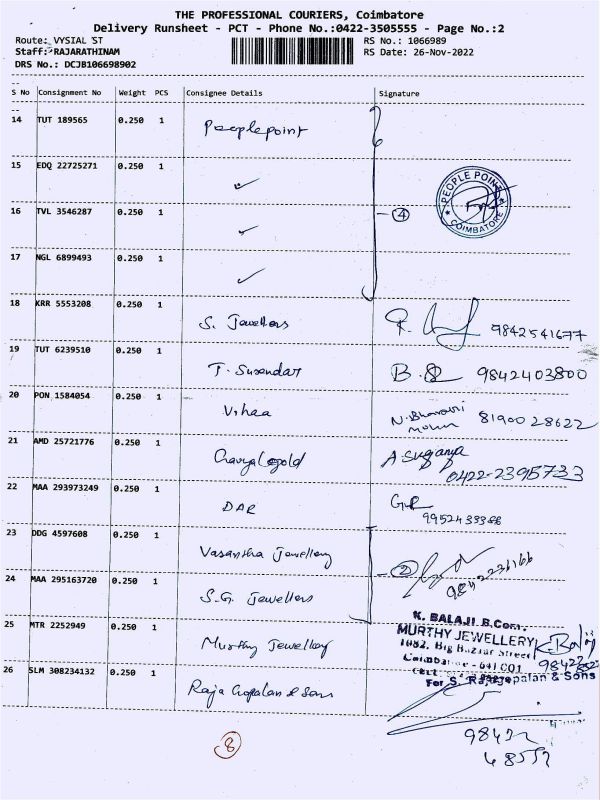 THE PROFESSIONAL COURIERS, Coimbatore
Delivery Runsheet - PCT - Phone No.:0422-3505555 - Page No.:2
Route: VYSIAL ST
RS No.: 1066989
Staff: RAJARATHINAM
RS Date: 26-Nov-2022
DRS No.: DCJB106698902
S No Consignment No Weight PCS Consignee Details Signature
14 TUT 189565 0.250 1 Peoplepoint
15 EDQ 22725271 0.250 1 ✓
PEOPLE POINT
COIMBATORE
16 TVL 3546287 0.250 1 ✓ 4
17 NGL 6899493 0.250 1 ✓
18 KRR 5553208 0.250 1 S. Jewellers 9842541677
19 TUT 6239510 0.250 1 T. Surendar 9842403800
20 PON 1584054 0.250 1 Vihaa N. Bhavani 8190028622
21 AMD 25721776 0.250 1 A Suganya
0422-2395733
22 MAA 293973249 0.250 1 DAR
23 DDG 4597608 0.250 1 Vasantha Jewellery 2
24 MAA 295163720 0.250 1 S.G. Jewellers
K. BALAJI B.Com.,
25 MTR 2252949 0.250 1 Murthy Jewellery
MURTHY JEWELLERY
1082, Big Bazaar Street
Coimbatore - 641 001
26 SLM 308234132 0.250 1 Raja Gopalan & Sons
For S. Rajagopalan & Sons
98422
48552
8